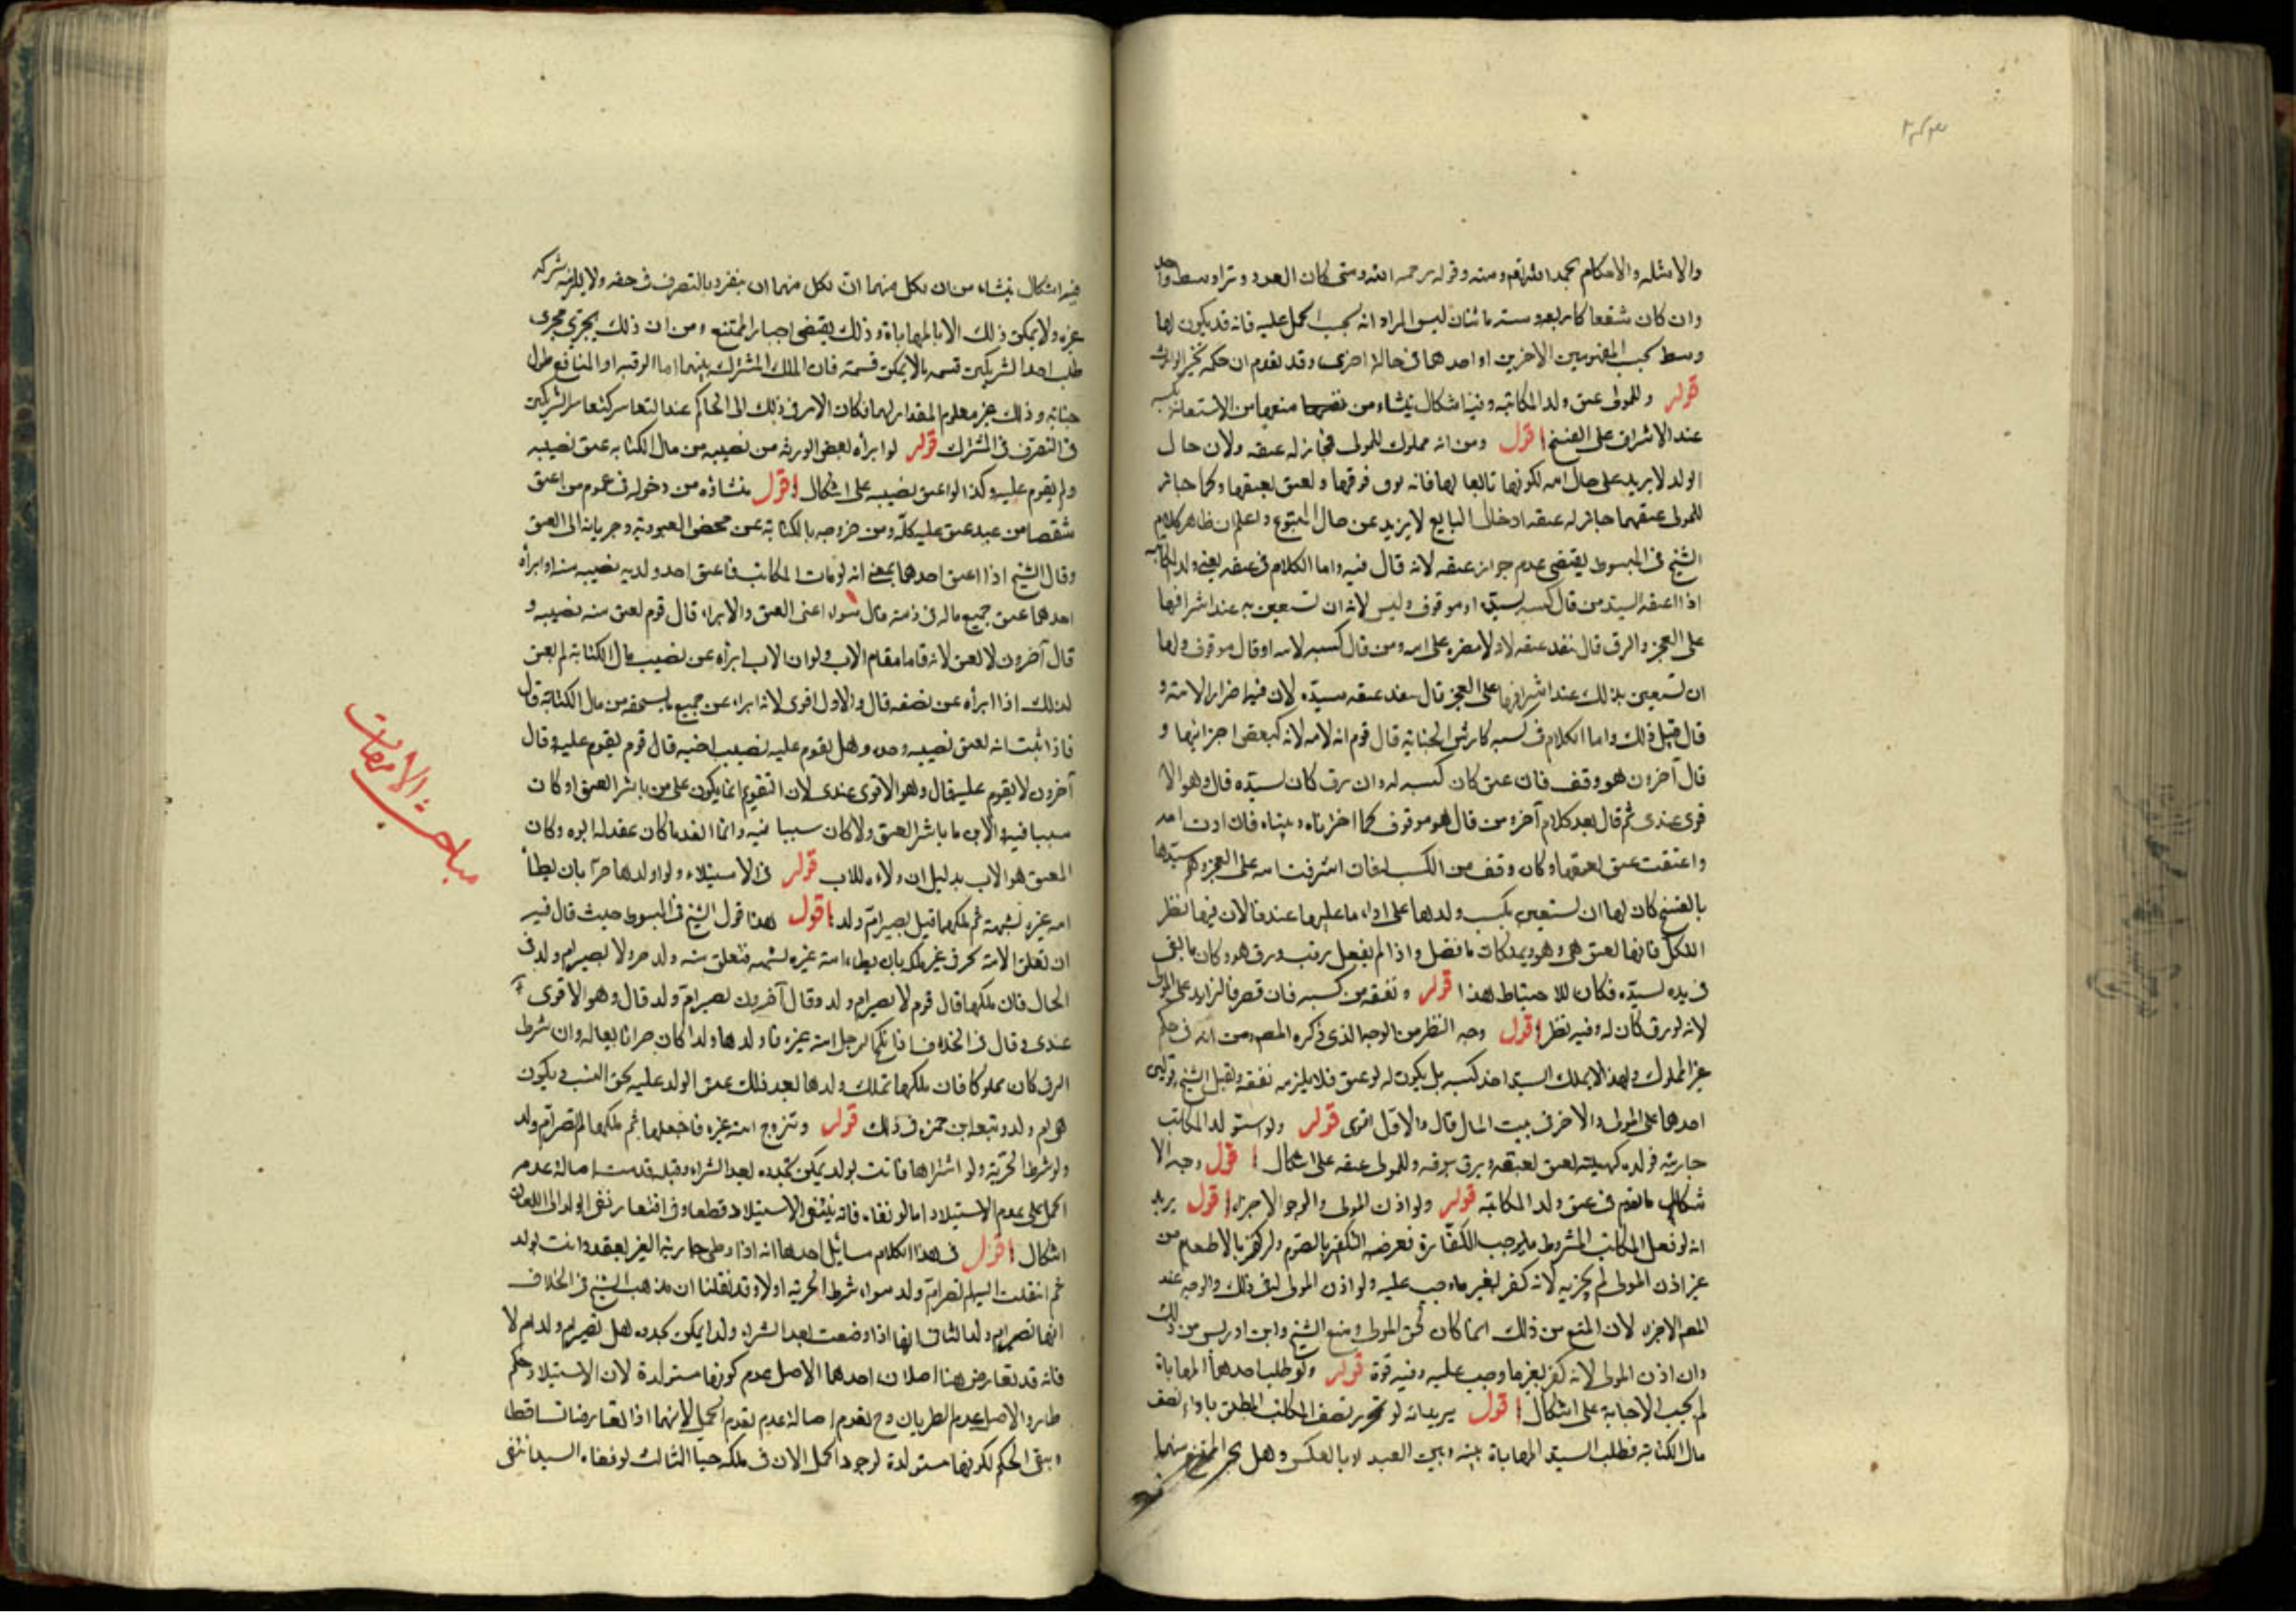 والامثله والاحكام بحمد الله تعم ومنه وقوله رحمه الله ومتى كان العدد وترا وسط واحد
وان كان شفعا كاربعه وسته ما ثنان ليس المراد انه يجب الحمل عليه فانه قد يكون لها
وسط بحسب المفهومين الاخرين او احدهما فى حالة اخرى وقد تقدم ان حكمه تخير الوارث
قوله وللمولى عتق ولد المكاتبه وفيه اشكال ينشاء من منعها من الاستعانة بكسبه
عند الاشراف على الفسخ اقول ومن انه مملوك للمولى فجاز له عتقه ولان حال
الولد لا يزيد على حال امه لكونها تابعا لها فانه يرق فرقها ولعتق بعتقها وكما جاز
للمولى عتقهما جاز له عتقه اذ حال التابع لا يزيد عن حال المتبوع واعلم ان ظاهر كلام
الشيخ فى المبسوط يقتضى عدم جواز عتقه لانه قال فيه واما الكلام فى عتقه يعنى ولد المكاتبه
اذا اعتقه السيد من قال كسبه لسيده او موقوف وليس لامه ان تستعين به عند اشرافها
على العجز والرق قال نفذ عتقه لانه لا مضره على امه ومن قال كسبه لامه او قال موقوف ولها
ان تستعين بذلك عند اشرافها على العجز قال ينفذ عتقه سيده لان فيه اضرار الامته و
قال قبل ذلك واما الكلام فى كسبه كارش الجنايه قال قوم انه لامه لانه كبعض اجزائها و
قال آخرون هو وقف فان عتق كان كسبه له وان رق كان لسيده قال وهو الا
قوى عندى ثم قال بعد كلام آخر ومن قال هو موقوف كما اخترناه وبيناه فان ادت امه
واعتقت عتق بعتقها وكان وقف من الكسب له فان اشرفت امه على العجز وهم سيدها
بالفسخ كان لها ان تستعين بكسب ولدها على اداء ما عليها عندنا لان فيها النظر
للكل فانها تعتق هى وهو ويملكان ما فضل واذا لم يفعل رقيت ورق هو وكان ما بقى
فى يده لسيده فكان للاحتياط هذا قوله ونفقته من كسبه فان قصر فالزايد على المولى
لانه لو رق كان له وفيه نظر اقول وجه النظر من الوجه الذى ذكره المصم ومن انه فى حكم
غير المملوك ولهذا لا يملك السيد اخذ كسبه بل يكون له لو عتق فلا يلزمه نفقته ونقل الشيخ قولين
احدهما على المولى والاخر فى بيت المال قال والاول اقوى قوله ولو استولد المكاتب
جاريته فولده كهيئته لعتق بعتقه ويرق برقه وللمولى عتقه على اشكال اقول وجه الا
شكال ما تقدم فى عتق ولد المكاتبه قوله ولو اذن المولى والوجه الاجزاء اقول يريد
انه لو فعل المكاتب المشروط ما يوجب الكفارة ففرضه التكفير بالصوم ولو كفر بالاطعام من
غير اذن المولى لم يجزيه لانه كفر بغير ما وجب عليه ولو اذن المولى له فى ذلك والوجه عند
المصم الاجزاء لان المنع من ذلك انما كان لحق المولى ومنع الشيخ وابن ادريس من ذلك
وان اذن المولى لانه كفر بغير ما وجب عليه وفيه قوة قوله ولو طلب احدهما المهاياة
لم يجب الاجابة على اشكال اقول يريد انه لو تحرر نصف المكاتب المطلق باداء نصف
مال الكتابة فطلب السيد المهاياة بينه وبين العبد او بالعكس وهل يجبر الممتنع منهما
فيه اشكال ينشاء من ان لكل منهما ان ينفرد بالتصرف فى حقه ولا يلزمه شركه
غيره ولا يمكن ذلك الا بالمهاياة وذلك يقتضى اجبار الممتنع ومن ان ذلك يجرى مجرى
طلب احد الشريكين قسمه ما لا يمكن قسمته فان الملك المشترك بينهما اما الرقبه او المنافع طول
حياته وذلك غير معلوم المقدار لهما فكان الامر فى ذلك الى الحاكم عند التعاسر كتعاسر الشريكين
فى التصرف فى المشترك قوله لو ابرأه بعض الورثه من نصيبه من مال الكتابه عتق نصيبه
ولم يقوم عليه وكذا لو اعتق نصيبه على اشكال اقول منشاؤه من دخوله فى عموم من اعتق
شقصا من عبد عتق عليه كله ومن خروجه بالكتابة عن محض العبودية وجريانه الى العتق
وقال الشيخ اذا اعتق احدهما بمعنى انه لو مات المكاتب فاعتق احد ولديه نصيبه منه او ابراه
احدهما عن جميع ماله فى ذمته قال سواء اعنى العتق والابراء قال قوم لعتق منه نصيبه و
قال آخرون لا لعتق لانه قاما مقام الاب ولو ان الاب ابرأه عن نصيب مال الكتابة لم يعتق
لذلك اذا ابرأه عن نصفه قال والاول اقوى لانه ابراء عن جميع ما يستحقه من مال الكتابة قال
فاذا ثبت انه لعتق نصيبه وحده وهل يقوم عليه نصيب اخيه قال قوم يقوم عليه وقال
آخرون لا يقوم عليه قال وهو الاقوى عندى لان التقويم انما يكون على من باشر العتق او كان
سببا فيه والابن ما باشر العتق ولا كان سببا فيه وانما انفذ ما كان عقد له ابوه وكان
المعتق هو الاب بدليل ان ولاءه للاب قوله فى الاستيلاء ولو اولدها حرا بان يطأ
امه غيره لشبهة ثم ملكها قيل يصير ام ولد اقول هذا قول الشيخ فى المبسوط حيث قال فيه
ان تعلق الامة بحر فى غير ملك بان يطاء امته غيره لشبهه فتعلق منه ولد حر ولا يصير ام ولد فى
الحال فان ملكها قال قوم لا يصير ام ولد وقال آخرون يصير ام ولد قال وهو الاقوى
عندى وقال فى الخلاف اذا نكح الرجل امة غيره فاولدها ولدا كان حرا تابعا له وان شرط
الرق كان مملوكا فان ملكها وملك ولدها بعد ذلك عتق الولد عليه بحق النسب ويكون
هى ام ولد وتبعه ابن حمزه فى ذلك قوله وتزوج امته غيره فاحبلها ثم ملكها لم تصر ام ولد
ولو شرط الحرية ولو اشتراها فاتت بولد يمكن تجدده بعد الشراء وقبله قدمت اصالة عدم
الحمل على عدم الاستيلاد اما لو نفاه فانه ينتفى الاستيلاد قطعا وفى افتقار نفى الولد الى اللعان
اشكال اقول فى هذا الكلام مسائل احدها انه اذا وطى جارية الغير بعقد واتت بولد
ثم انتقلت اليه لم تصر ام ولد سواء شرط الحرية او لا وقد نقلنا ان مذهب الشيخ فى الخلاف
انها تصير ام ولد الثانى انها اذا وضعت بعد الشراء ولدا يمكن تجدده هل تصير ام ولد ام لا
فانه قد تعارض هنا اصلان احدهما الاصل عدم كونها مستولدة لان الاستيلاد حكم
طار والاصل عدم الطريان وح تقدم اصالة عدم تقدم الحمل لانهما اذا تعارضا تساقطا
وبقى الحكم لكونها مستولدة لوجود الحمل الان فى ملكه حيا الثالث لو نفاه السيد انتفى
مباحث الأمهات